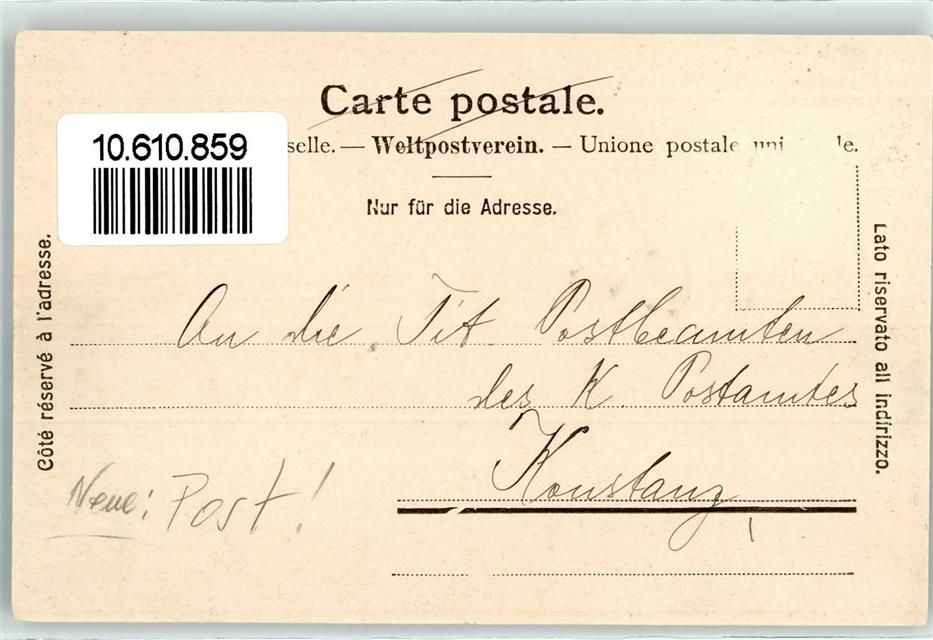 Carte postale.
10.610.859
selle. — Weltpostverein. — Unione postale uni le.
Nur für die Adresse.
Côté réservé à l'adresse.
Lato riservato all indirizzo.
An die Tit. Postbeamten
des K. Postamtes
Konstanz
Neue: Post!